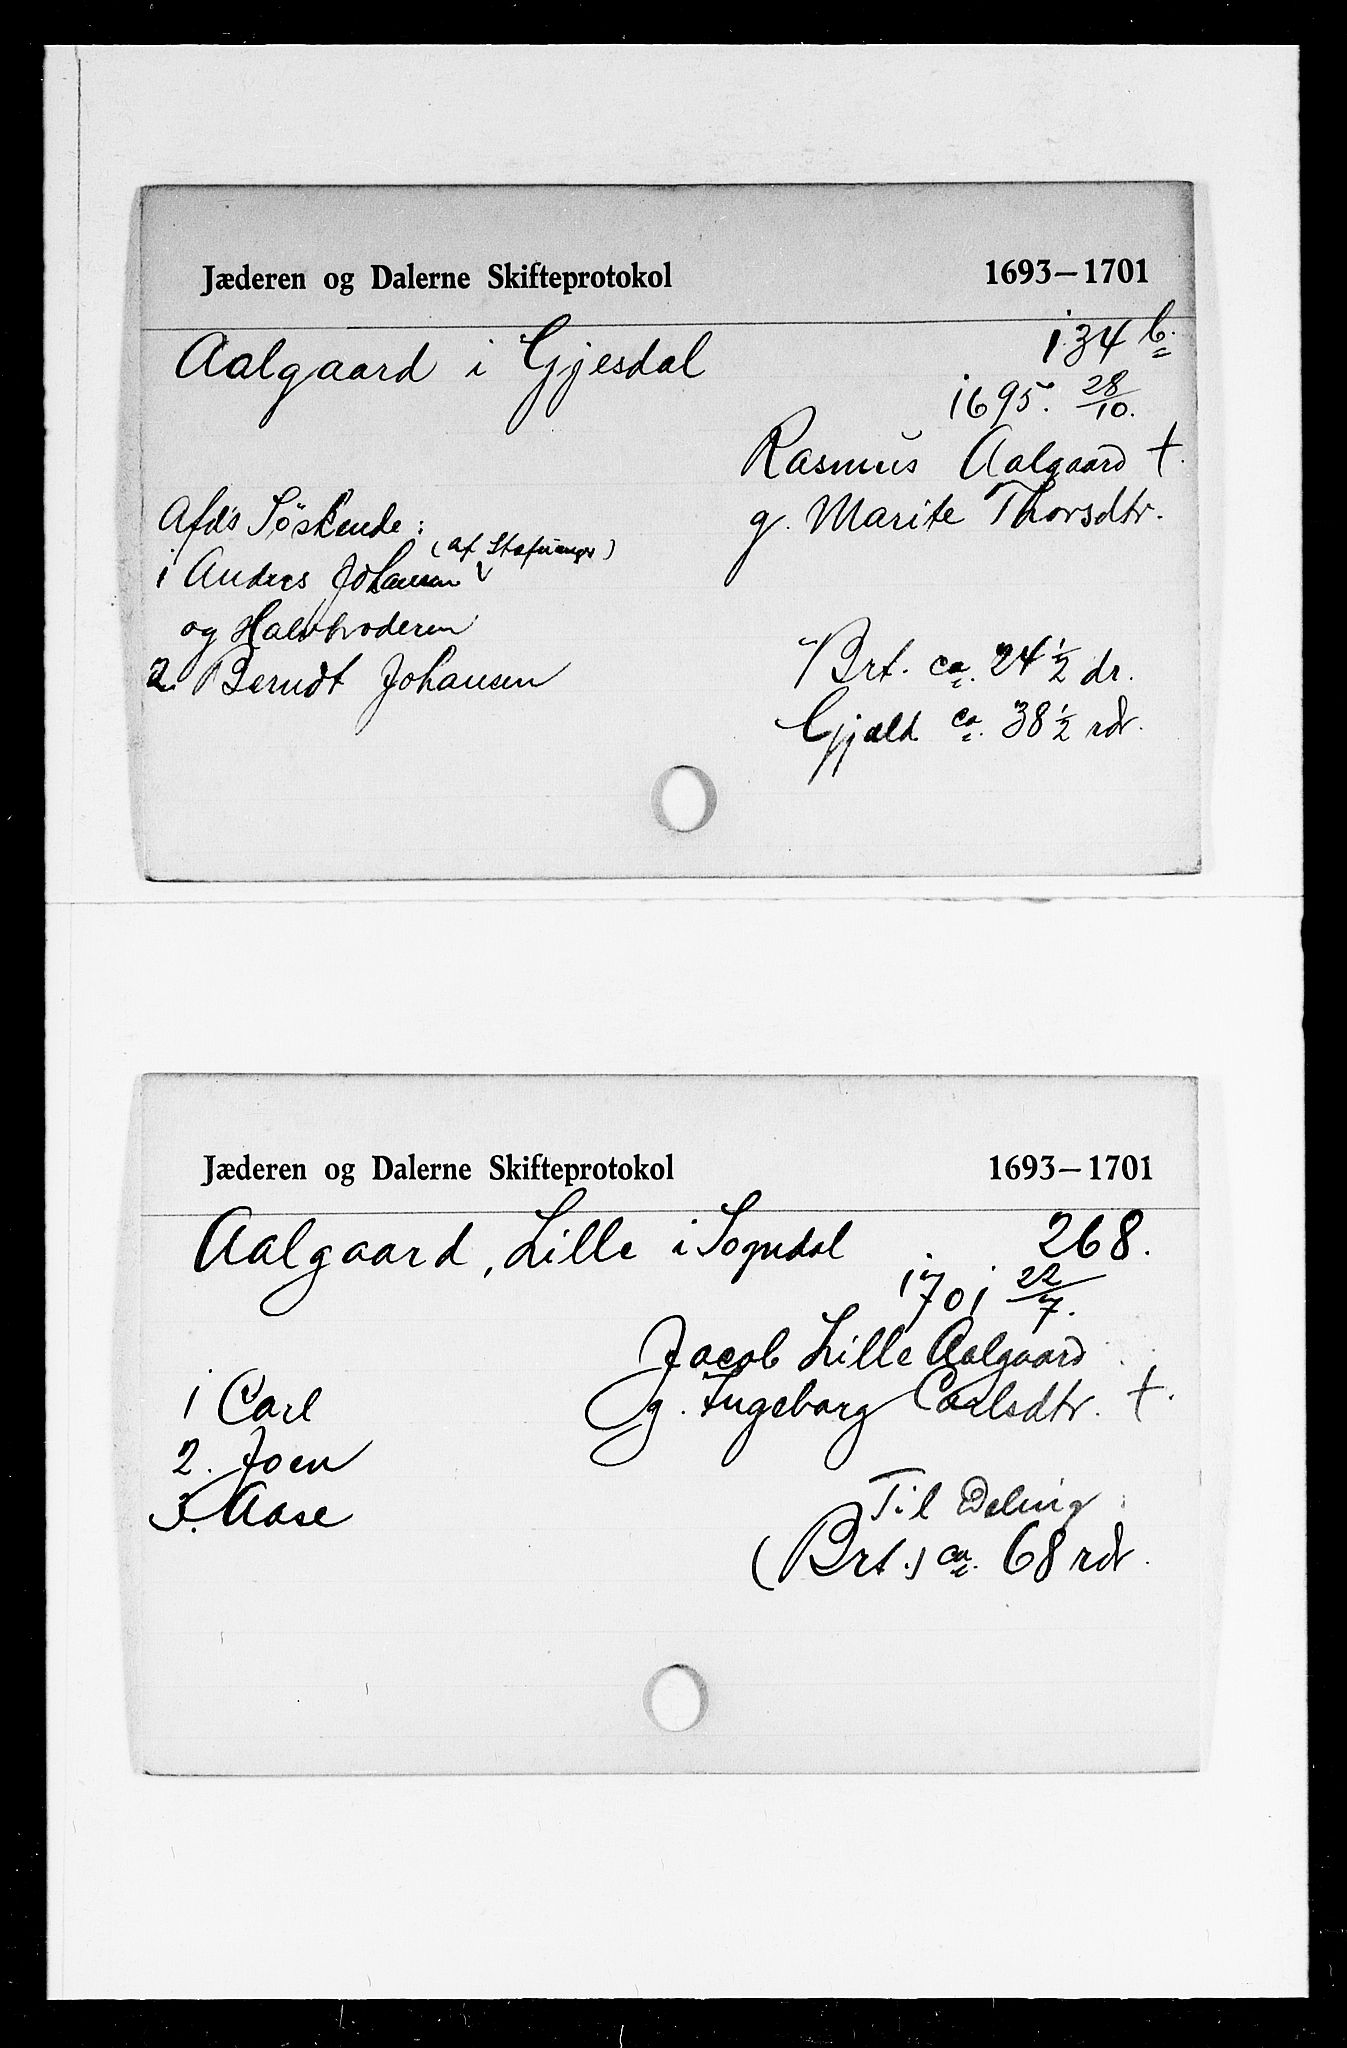 Jæderen og Dalerne Skifteprotokol 1693–1701
Aalgaard i Gjesdal 134 b.
1695. 28/10.
Rasmus Aalgaard †.
g. Marite Thorsdtr.
Afd's Söskende:
1 Anders Johansen (af Stafvanger)
og Halvbroderen
2. Berndt Johansen
Brt. ca. 24 ½ dr.
Gjæld ca. 38 ½ rdr.
Jæderen og Dalerne Skifteprotokol 1693–1701
Aalgaard, Lille i Sogndal 268.
1701 22/7.
Jacob Lille Aalgaard
g. Ingeborg Carlsdtr. †.
1 Carl
2. Joen
3. Aase
Til Deling:
(Brt.) ca. 68 rdr.